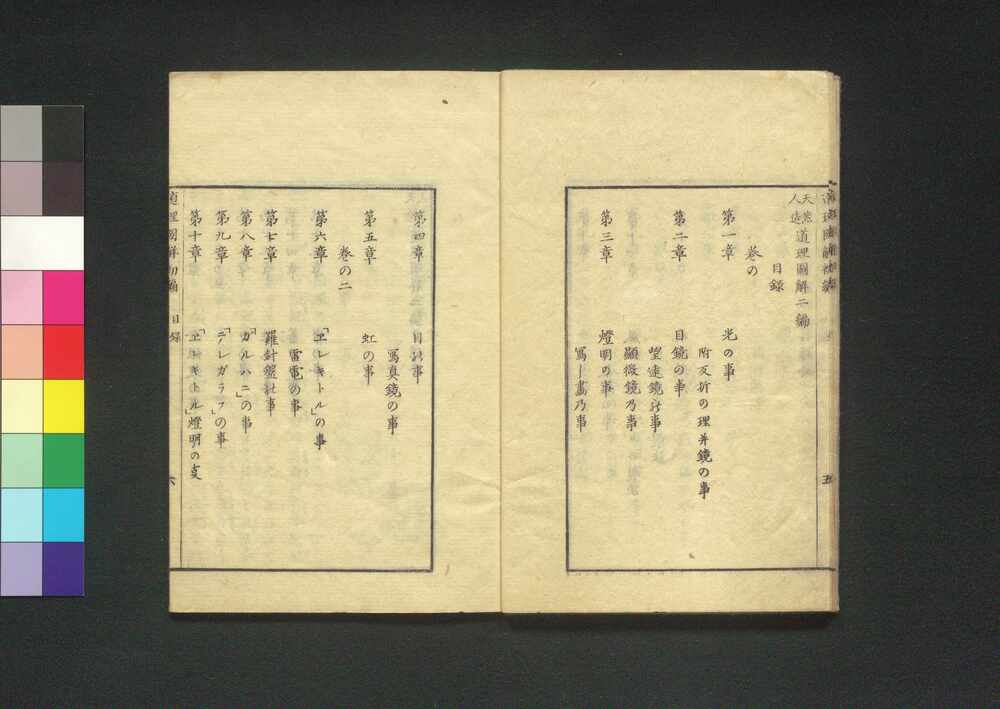 天然人造道理圖解二編
目録
巻の
第一章 光の事
附反折の理并鏡の事
第二章 目鏡の事
望遠鏡の事
顯微鏡乃事
第三章 燈明の事
写し畫乃事
五
第四章 目の事
写真鏡の事
第五章 虹の事
巻の二
第六章 「エレキトル」の事
雷電の事
第七章 羅針盤の事
第八章 「ガルハニ」の事
第九章 「テレガラフ」の事
第十章 「エレキトル」燈明の支
道理圖解初編 目録 六